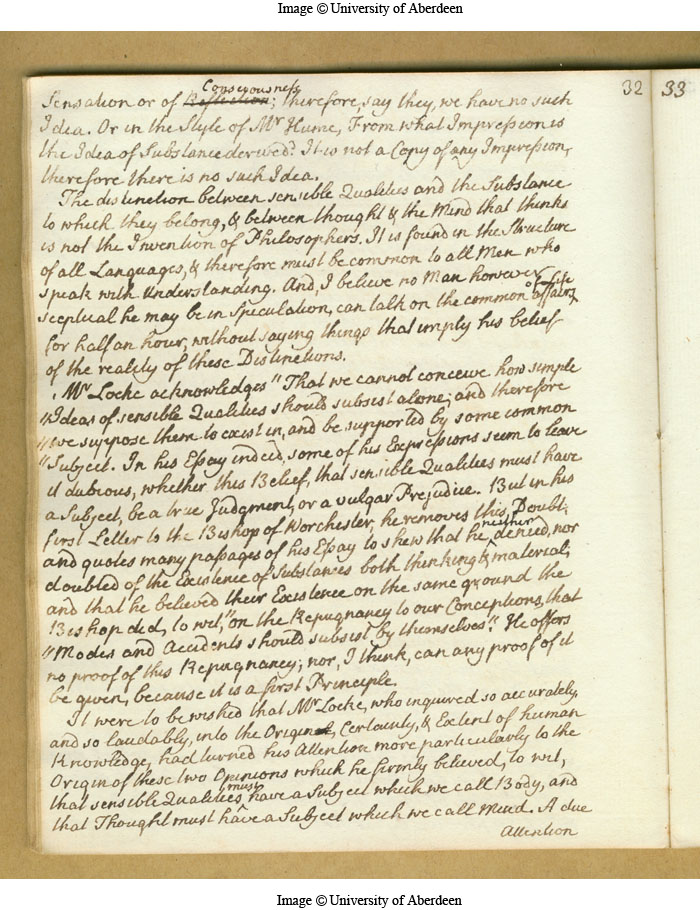 Image © University of Aberdeen
32 33
Consciousness
Sensation or of Reflection; therefore, say they, we have no such
Idea. Or in the Style of Mr Hume, From what Impression is
the Idea of Substance derived? It is not a Copy of any Impression,
therefore there is no such Idea.
The distinction between sensible Qualities and the Substance
to which they belong, & between thought & the Mind that thinks
is not the Invention of Philosophers. It is found in the Structure
of all Languages, & therefore must be common to all Men who
speak with Understanding. And, I believe no Man however
of Life
sceptical he may be in Speculation, can talk on the common affairs
for half an hour, without saying things that imply his belief
of the reality of these Distinctions.
Mr Locke acknowledges "That we cannot conceive how simple
"Ideas of sensible Qualities should subsist alone; and therefore
"we suppose them to exist in, and be supported by some common
"Subject. In his Essay indeed, some of his Expressions seem to leave
it dubious, whether this Belief, that sensible Qualities must have
a Subject, be a true Judgment, or a vulgar Prejudice. But in his
first Letter to the Bishop of Worchester, he removes this Doubt,
neither
and quotes many passages of his Essay to shew that he denied, nor
doubted of the Existence of Substances both thinking & material;
and that he believed their Existence on the same ground the
Bishop did, to wit, "on the Repugnancy to our Conceptions, that
"Modes and Accidents should subsist by themselves". He offers
no proof of this Repugnancy; nor, I think, can any proof of it
be given, because it is a first Principle.
It were to be wished that Mr Locke, who inquired so accurately,
and so laudably, into the Origin, Certainty, & Extent of human
Knowledge, had turned his Attention more particularly to the
Origin of these two Opinions which he firmly believed, to wit,
must
that sensible Qualities have a Subject which we call Body, and
that Thought must have a Subject which we call Mind. A due
Attention
Image © University of Aberdeen